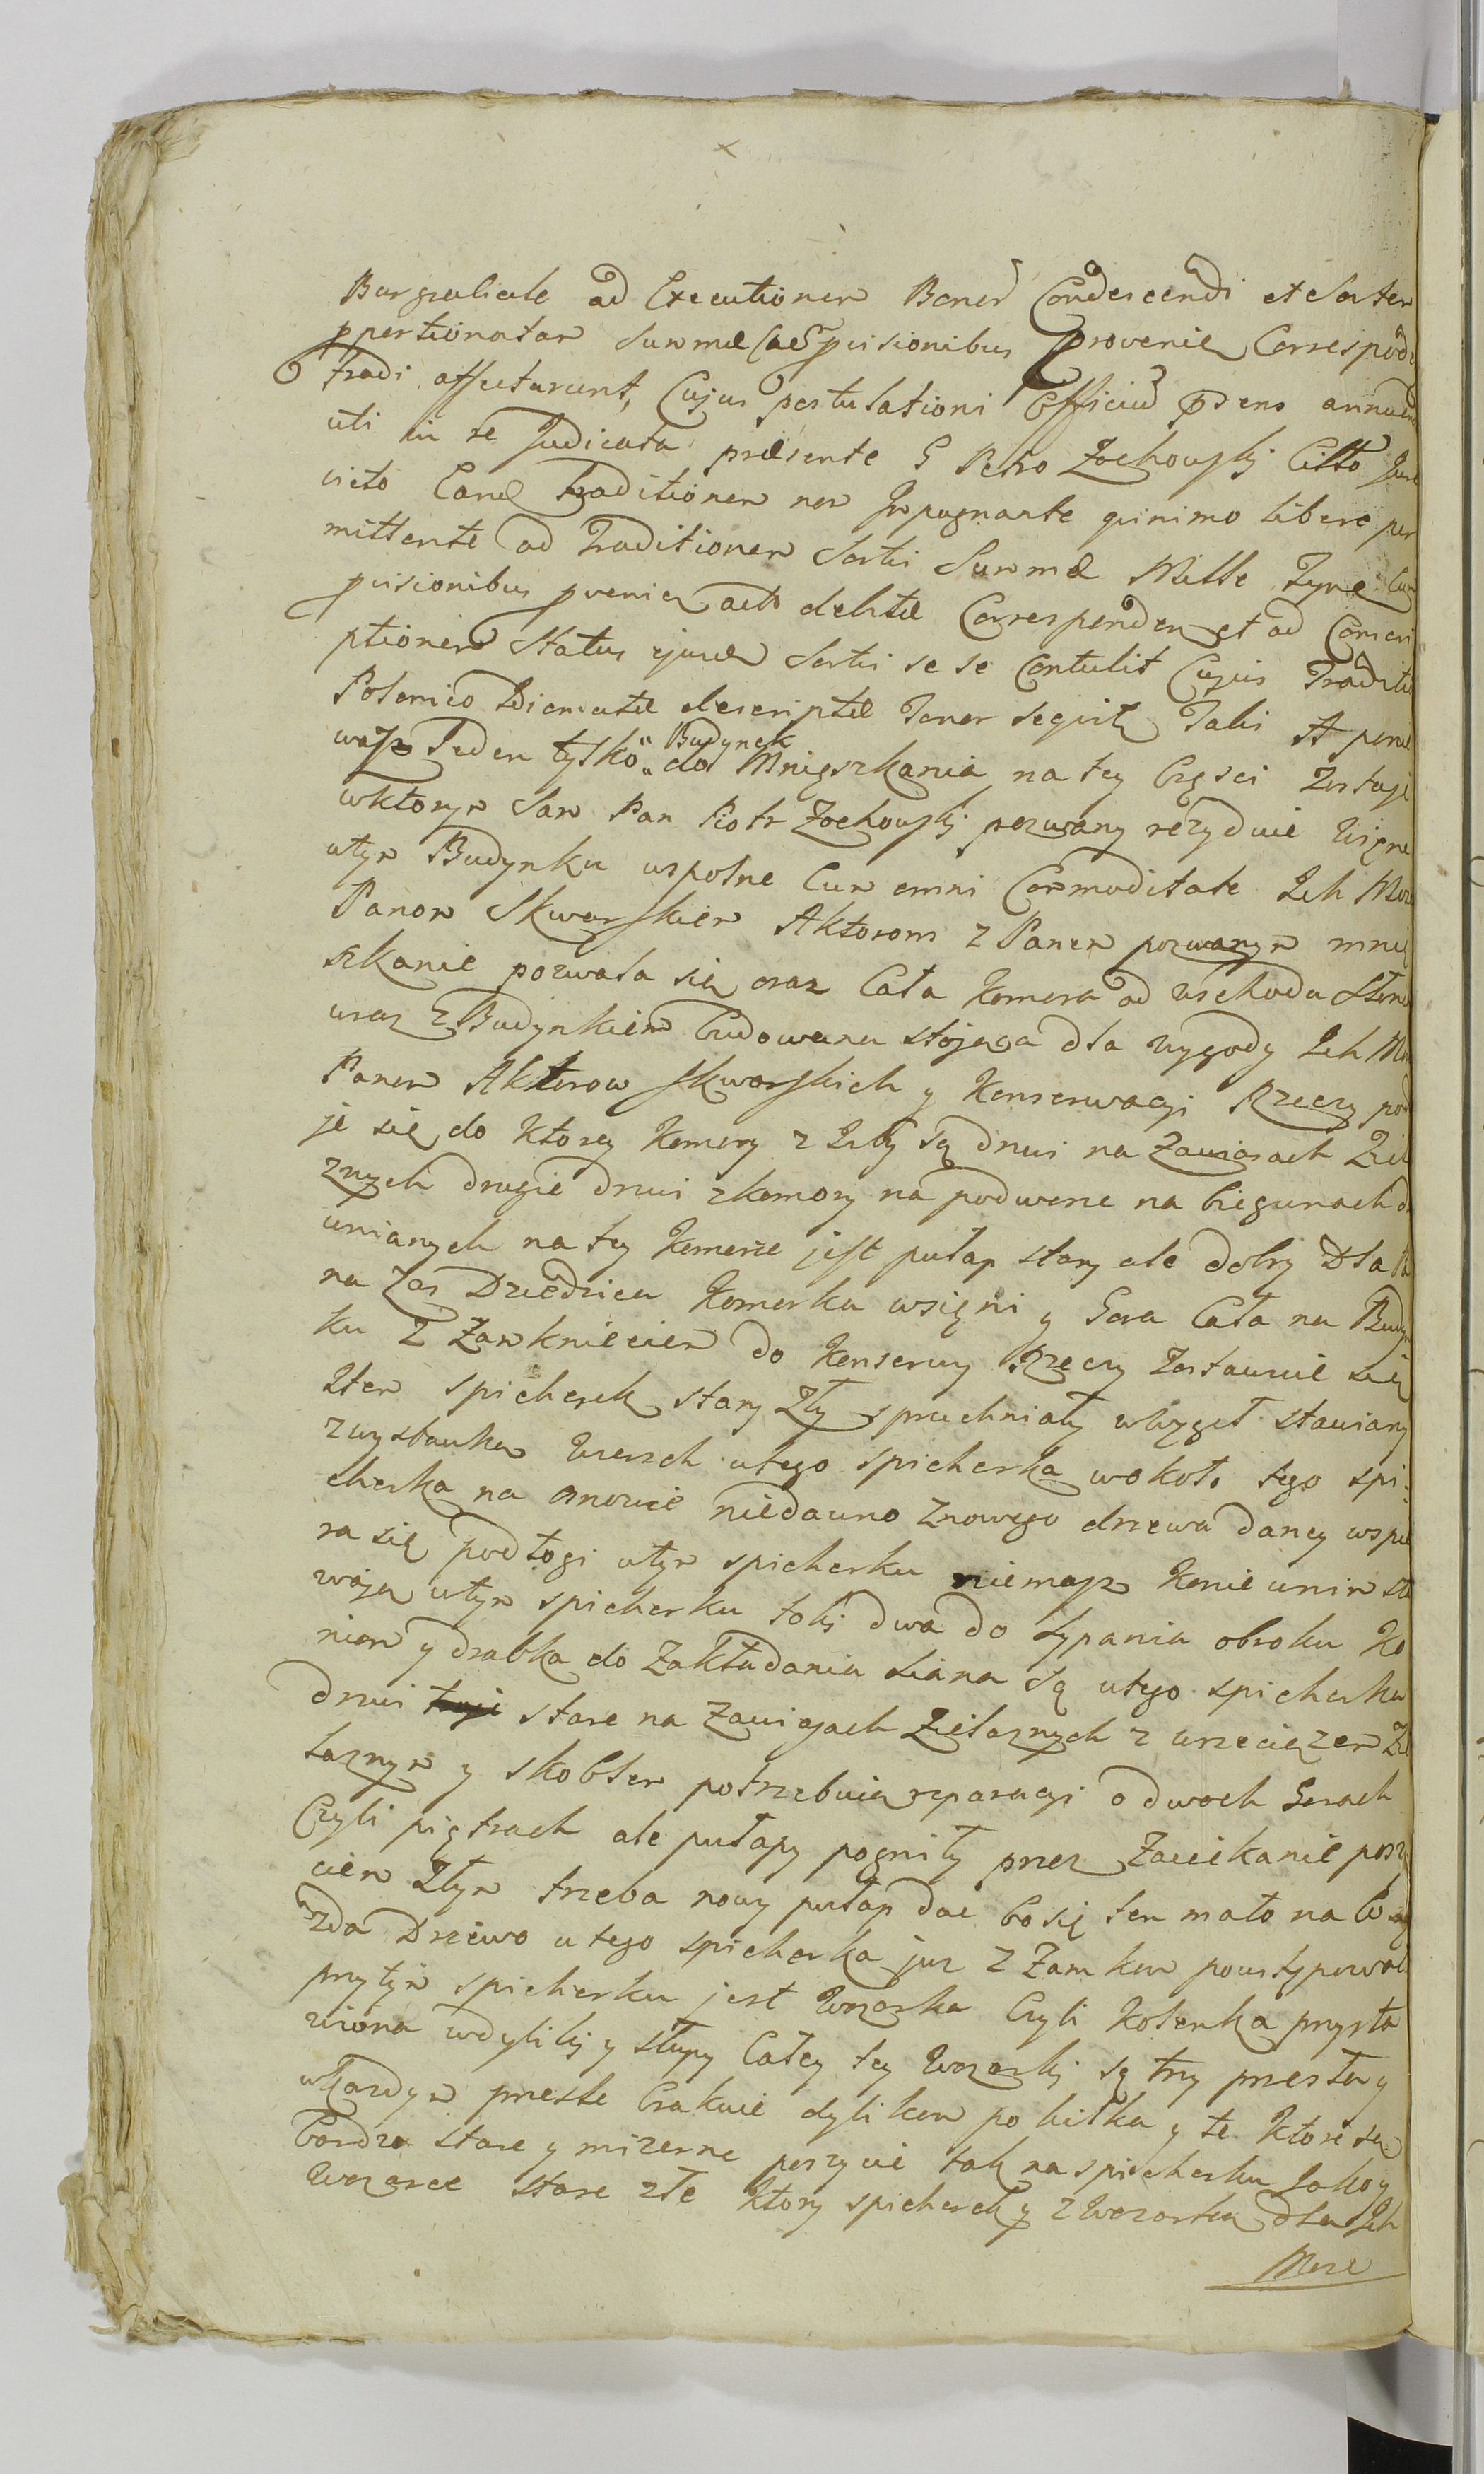 Burgrabiale ad Executionem Bonor Condescendi et Sortem
pportionatam Summae Cae provisionibus provenien Correspode
tradi affectarunt, Cujus postulationi Officiu pdsens annuen
uti in re Judicata praesente G Petro Zochowskj Citto Jure
victo Eand Traditionem non Impugnante quinimo libere per
mittente ad Traditionem Sortis Summae Mille Tynf Cum
pvisionibus pvenien actt debitae Corresponden et ad Conscri
ptionem Status ejusd Sortis se se Contulit Cujus Traditio
Polonico Idiomate descriptae Tenor sequit Talis A ponie
waz Jeden tylko " Budynek do Mnięszkania na tey Częsci Zostaje
wktorym Sam Pan Piotr Zochowskj pozwany rezyduie Więc
wtym Budynku wspolne Cum omni Commoditate Ich Mos
Panom Skwarskiem Aktorom z Panem pozwanym mnię
szkanie pozwala się oraz Cała Komora od wschodu Słonc
wraz z Budynkiem budowana stojąca dla wygody Ich Mo
Panow Aktorow Skwarskich y Konserwacyi Rzeczy pod
je się do Ktorey Komory z Izby są drzwi na Zawiasach Zel
znych drugie drzwi z komory na podworze na biegunach d
wnianych na tey Komorze jest pułap stary ale dobry Dla Pa
na Zas Dziedzica Komorka wsięni y Gora Cała na Budyn
ku z Zamknięciem do Konserwy Rzeczy Zostawuie się
Item spicherek stary Zły spruchniały wWęgeł stawiany
z wystawką Wierzch utego spicherka wokoło tego spi
cherka na Gnowie niedawno znowego drzewa daney wspie
ra się podłogi wtym spicherku niemasz Konie wnim sta
waja wtym spicherku żłoby dwa do Sypania obroku Ko
niom y drabka do Zakładania Siana Są utego spicherka
drzwi stare na Zawiasach Żelaznych z wrzeciązem Że
laznym y skoblem potrzebuią reparacyi o dwoch Gorach
Czyli piętrach ale pułapy pogniły przez Zaciekanie poszy
ciem Złym trzeba nowy pułap dac bo się ten mało na Co
zda Drzewo utego spicherka juz z Zamkow powystypowało
przytym spicherku jest Wozowka Czyli Kolenka przysta
wiona wdyliki y słupy Całey tey Wozowki są trzy przesła y
wkazdym przesle brakuie dylikow po kilka y te Ktore są
bardzo stare y mizerne poszycie tak na spicherku Jako y
Wozowce stare złe Ktory spicherek y z Wozowką dla Ich
Mosc